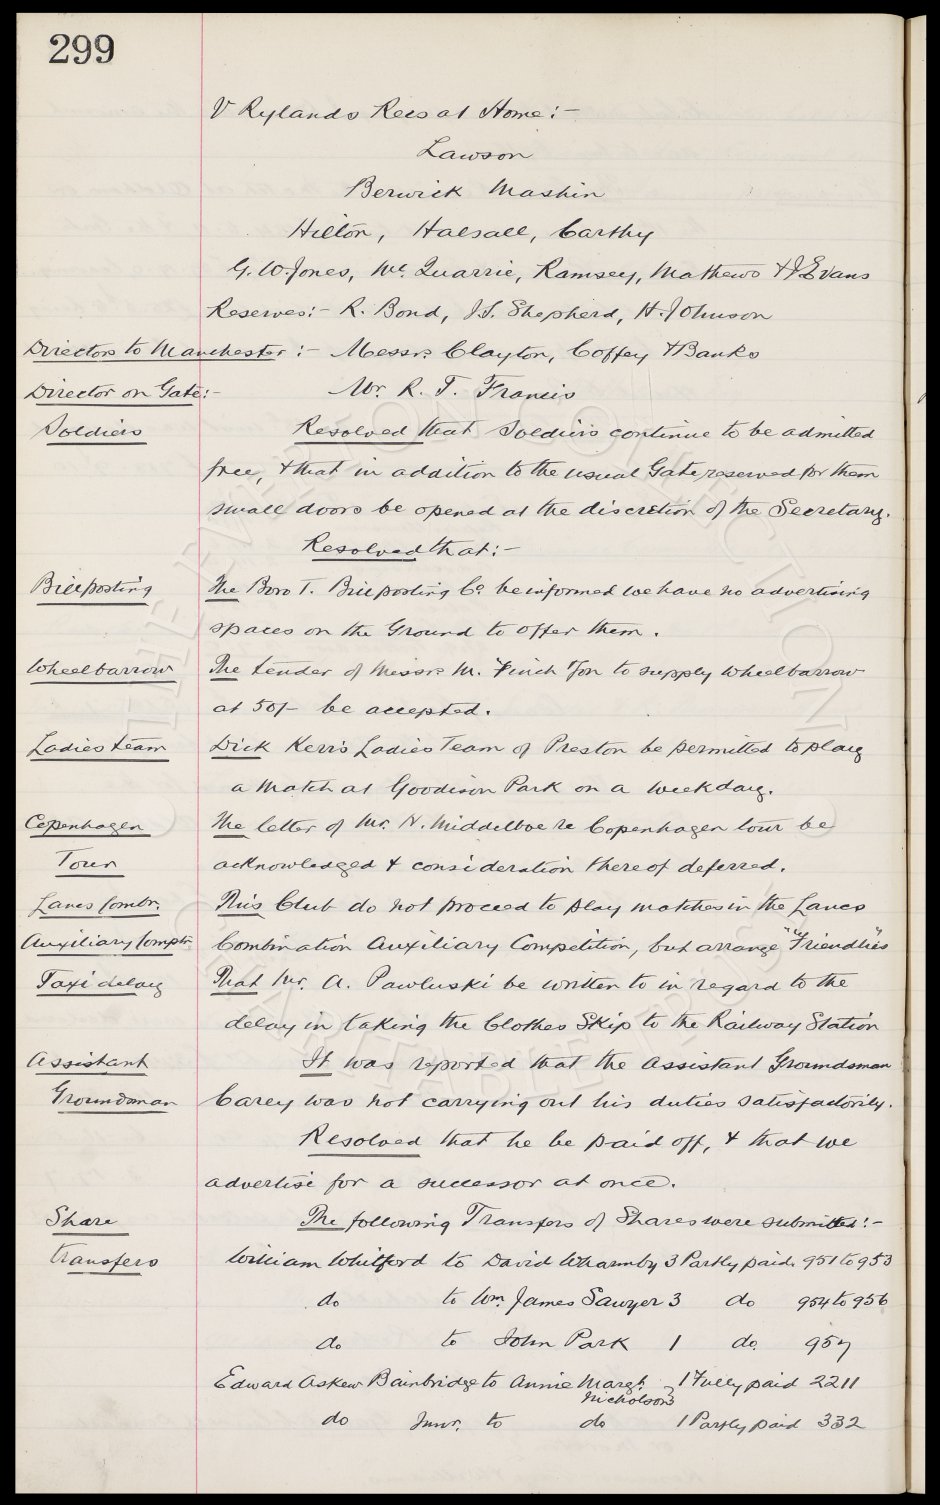 299
V Rylands Recs at Home :-
Lawson
Berwick Maskin
Hilton, Halsall, Carthy
G. W. Jones, Mc Quarrie, Ramsey, Mathews & J Evans
Reserves:- R. Bond, J. S. Shepherd, H. Johnson
Directors to Manchester :- Messrs Clayton, Coffey & Banks
Director on Gate :- Mr. R. T. Francis
Soldiers Resolved that Soldiers continue to be admitted
free, & that in addition to the usual Gate, reserved for them
small doors be opened at the discretion of the Secretary.
Resolved that :-
Billposting The Boro T. Billposting Co be informed we have no advertising
spaces on the Ground to offer them.
Wheelbarrow The tender of Messrs M. Finch & Son to supply wheelbarrow
at 50/- be accepted.
Ladies team Dick Kerr's Ladies Team of Preston be permitted to play
a match at Goodison Park on a weekday.
Copenhagen The letter of Mr. N. Middelboe re Copenhagen tour be
Tour acknowledged & consideration thereof deferred.
Lancs Combn. This Club do not proceed to play matches in the Lancs
Auxiliary Comptn Combination Auxiliary Competition, but arrange "Friendlies"
Taxi delay That Mr. A. Pawluski be written to in regard to the
delay in taking the Clothes Skip to the Railway Station
Assistant It was reported that the Assistant Groundsman
Groundsman Carey was not carrying out his duties satisfactorily.
Resolved that he be paid off, & that we
advertise for a successor at once.
Share The following Transfers of Shares were submitted :-
transfers William Whitford to David Wharmby 3 Partly paid. 951 to 953
do to Wm. James Sawyer 3 do 954 to 956
do to John Park 1 do. 957
Edward Askew Bainbridge to Annie Margt. Nicholson 1 Fully paid 2211
do Junr. to do 1 Partly paid 332
THE EVERTON COLLECTION
CHARITABLE TRUST